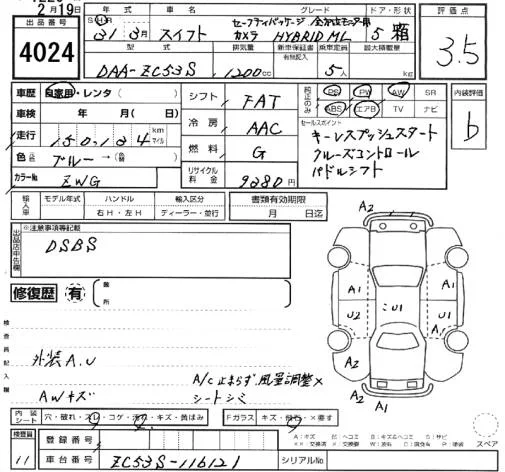 2月19日
出品番号
4024
年式 車名 グレード ドア・形状 評価点
31 3月 スイフト セーフティパッケージ 全方位モニター用カメラ HYBRID ML 5 箱 3.5
型式 排気量 新車保証書 乗車定員 最大積載量
有無記入
DAA-ZC53S 1200cc 5人 kg
車歴 自家用・レンタ( )
シフト FAT
純正のみ PS PW AW SR
ABS エアB TV ナビ
内装評価
b
車検 年 月( 日)
冷房 AAC
セールスポイント
キーレスプッシュスタート
クルーズコントロール
パドルシフト
走行 150,124 km マイル
燃料 G
色 ブルー→(色替 )
カラーNo ZWG
リサイクル料金 9280円
輸入車 モデル年式 ハンドル 輸入区分
右H・左H ディーラー・並行
書類有効期限
月 日迄
出品店申告欄
※注意事項等記載
DSBS
修復歴 有 箇所
検査員記入欄
外装A.U
AWキズ
A/C止まらず 風量調整×
シートシミ
A2
A1 A1
U2 U1 J2
A2
A1
内装シート 穴・破れ・スレ・コゲ・汚れ・キズ・黄ばみ
Fガラス キズ・飛石・×要す
A:キズ E:エクボ B:キズ&ヘコミ S:サビ
スペア
検査員
11
登録番号
車台番号 ZC53S-116121
シリアルNo